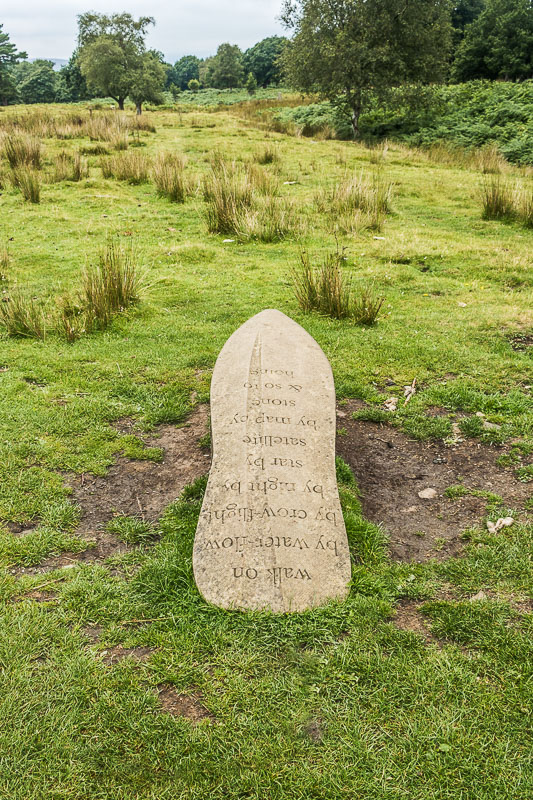 walk on
by water-flow
by crow-flight
by night by
star by
satellite
by map by
stone
& so to
home